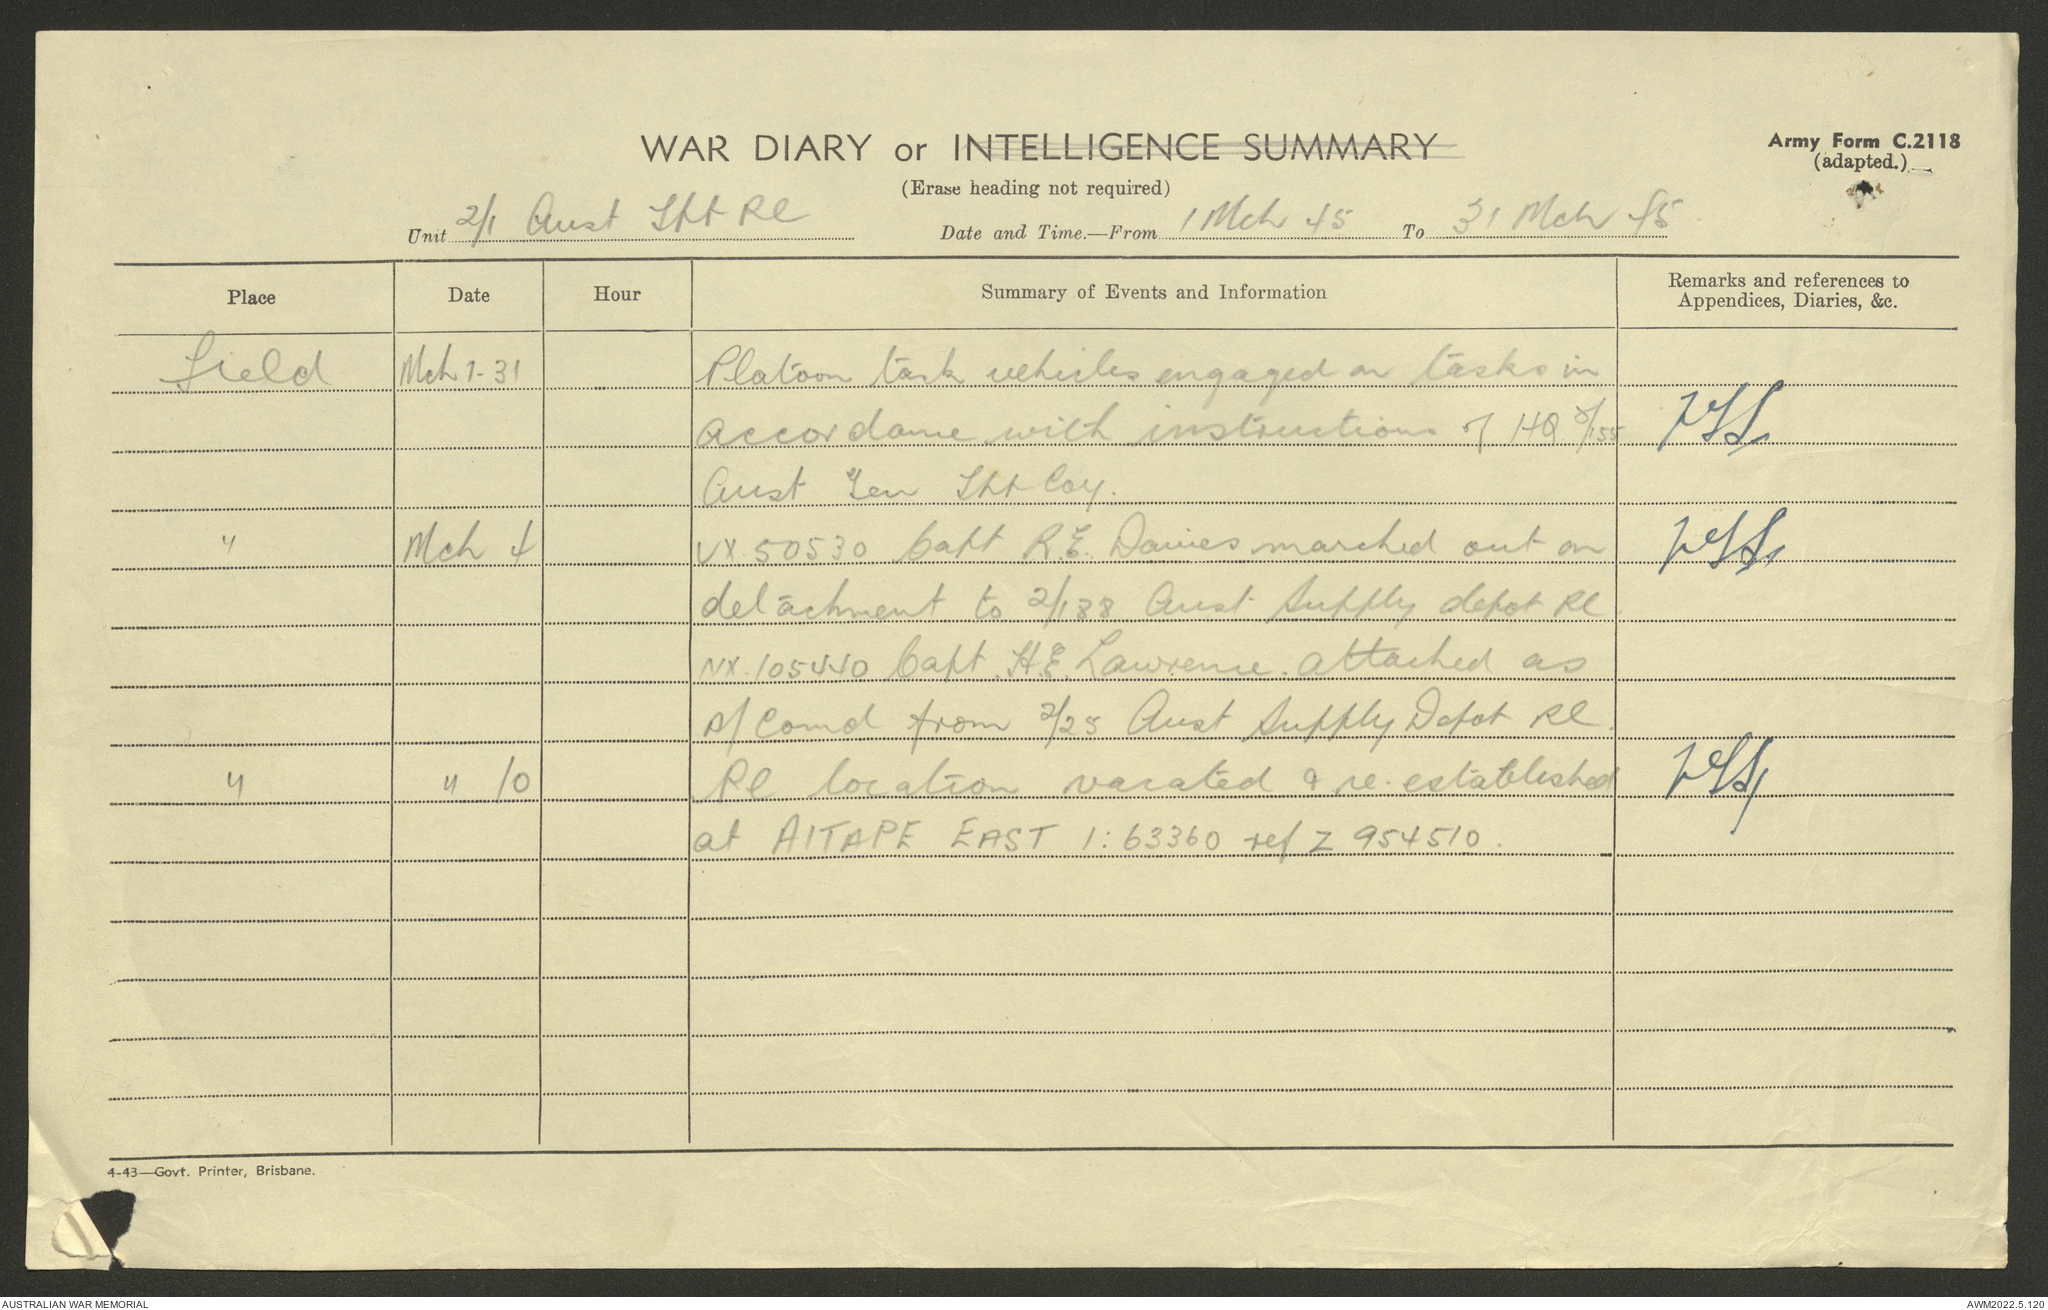 WAR DIARY or INTELLIGENCE SUMMARY
Army Form C.2118
(adapted.)
(Erase heading not required)
Unit 2/1 Aust Tpt Pl Date and Time.—From 1 Mch 45 To 31 Mch 45
Place Date Hour Summary of Events and Information Remarks and references to Appendices, Diaries, &c.
Field Mch 1-31 Platoon task vehicles engaged on tasks in
accordance with instructions of HQ 2/155
Aust Gen Tpt Coy.
" Mch 4 VX.50530 Capt R.E. Davies marched out on
detachment to 2/188 Aust Supply depot Pl
NX.105440 Capt. H.E. Lawrence. attached as
A/Comd from 2/25 Aust Supply Depot Pl.
" " 10 Pl location vacated & re-established
at AITAPE EAST 1:63360 ref Z 954510.
4-43—Govt. Printer, Brisbane.
AUSTRALIAN WAR MEMORIAL
AWM2022.5.120